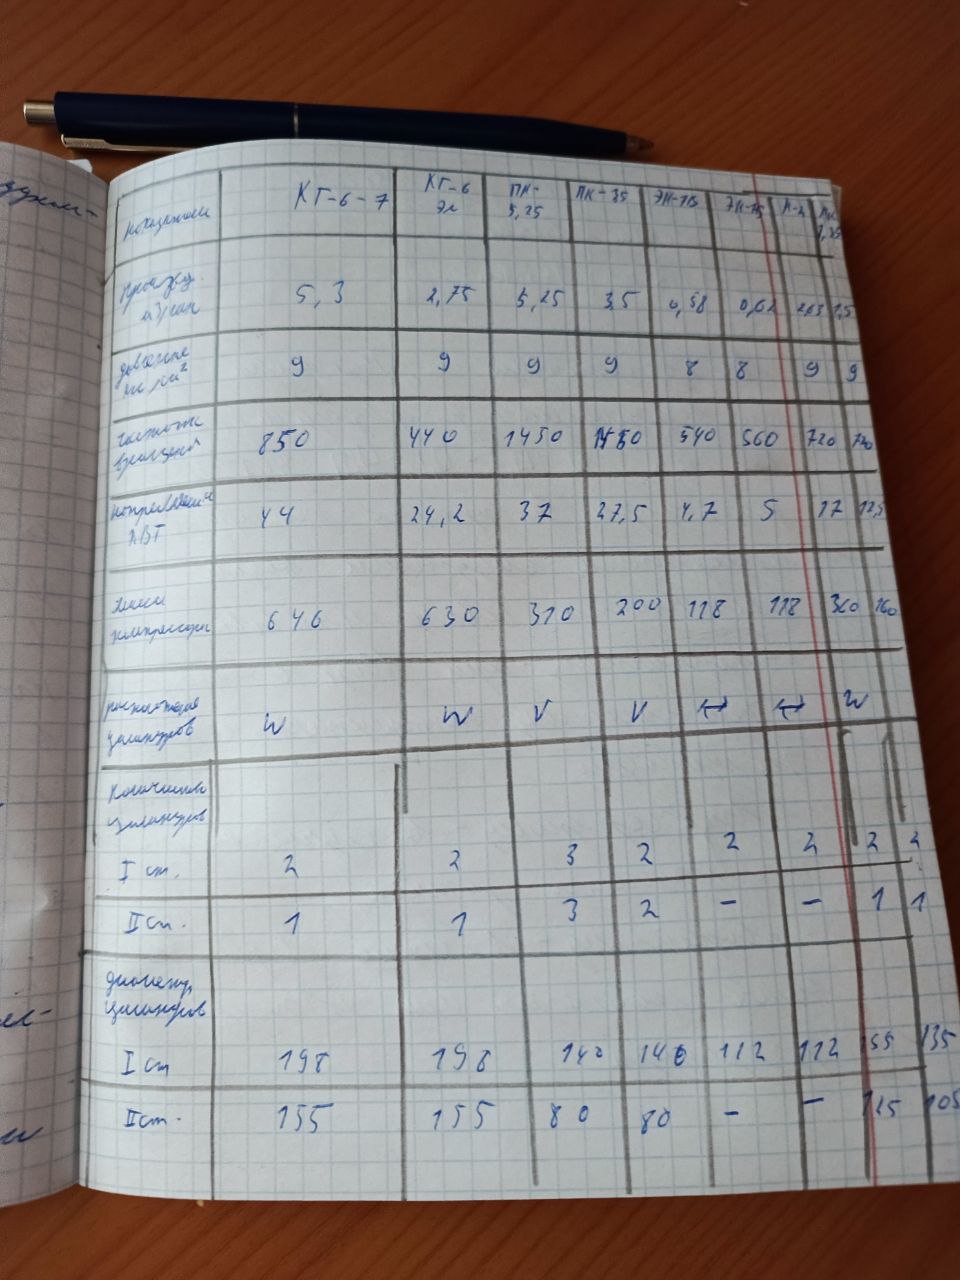 показатели КТ-6-7 КТ-6 Эл ПК-5,25 ПК-35 ЭК-7В ЭК-7В П-К
произву. м3/мин 5,3 2,75 5,25 3,5 0,58 0,62 2,63
давление кг/см² 9 9 9 9 8 8 9 9
частота вращений 850 440 1450 540 560 720 720
кВТ 44 24,2 37 27,5 4,7 5 17
компрессора 646 630 310 200 118 118 160
цилиндров W W V V ↔ ↔ W
Количество цилиндров
I ст. 2 2 3 2 2 2 2 2
II ст. 1 1 3 2 – – 1 1
диаметр цилиндров
I ст 198 198 140 140 112 112 155 135
II ст. 155 155 80 80 – – 125 105